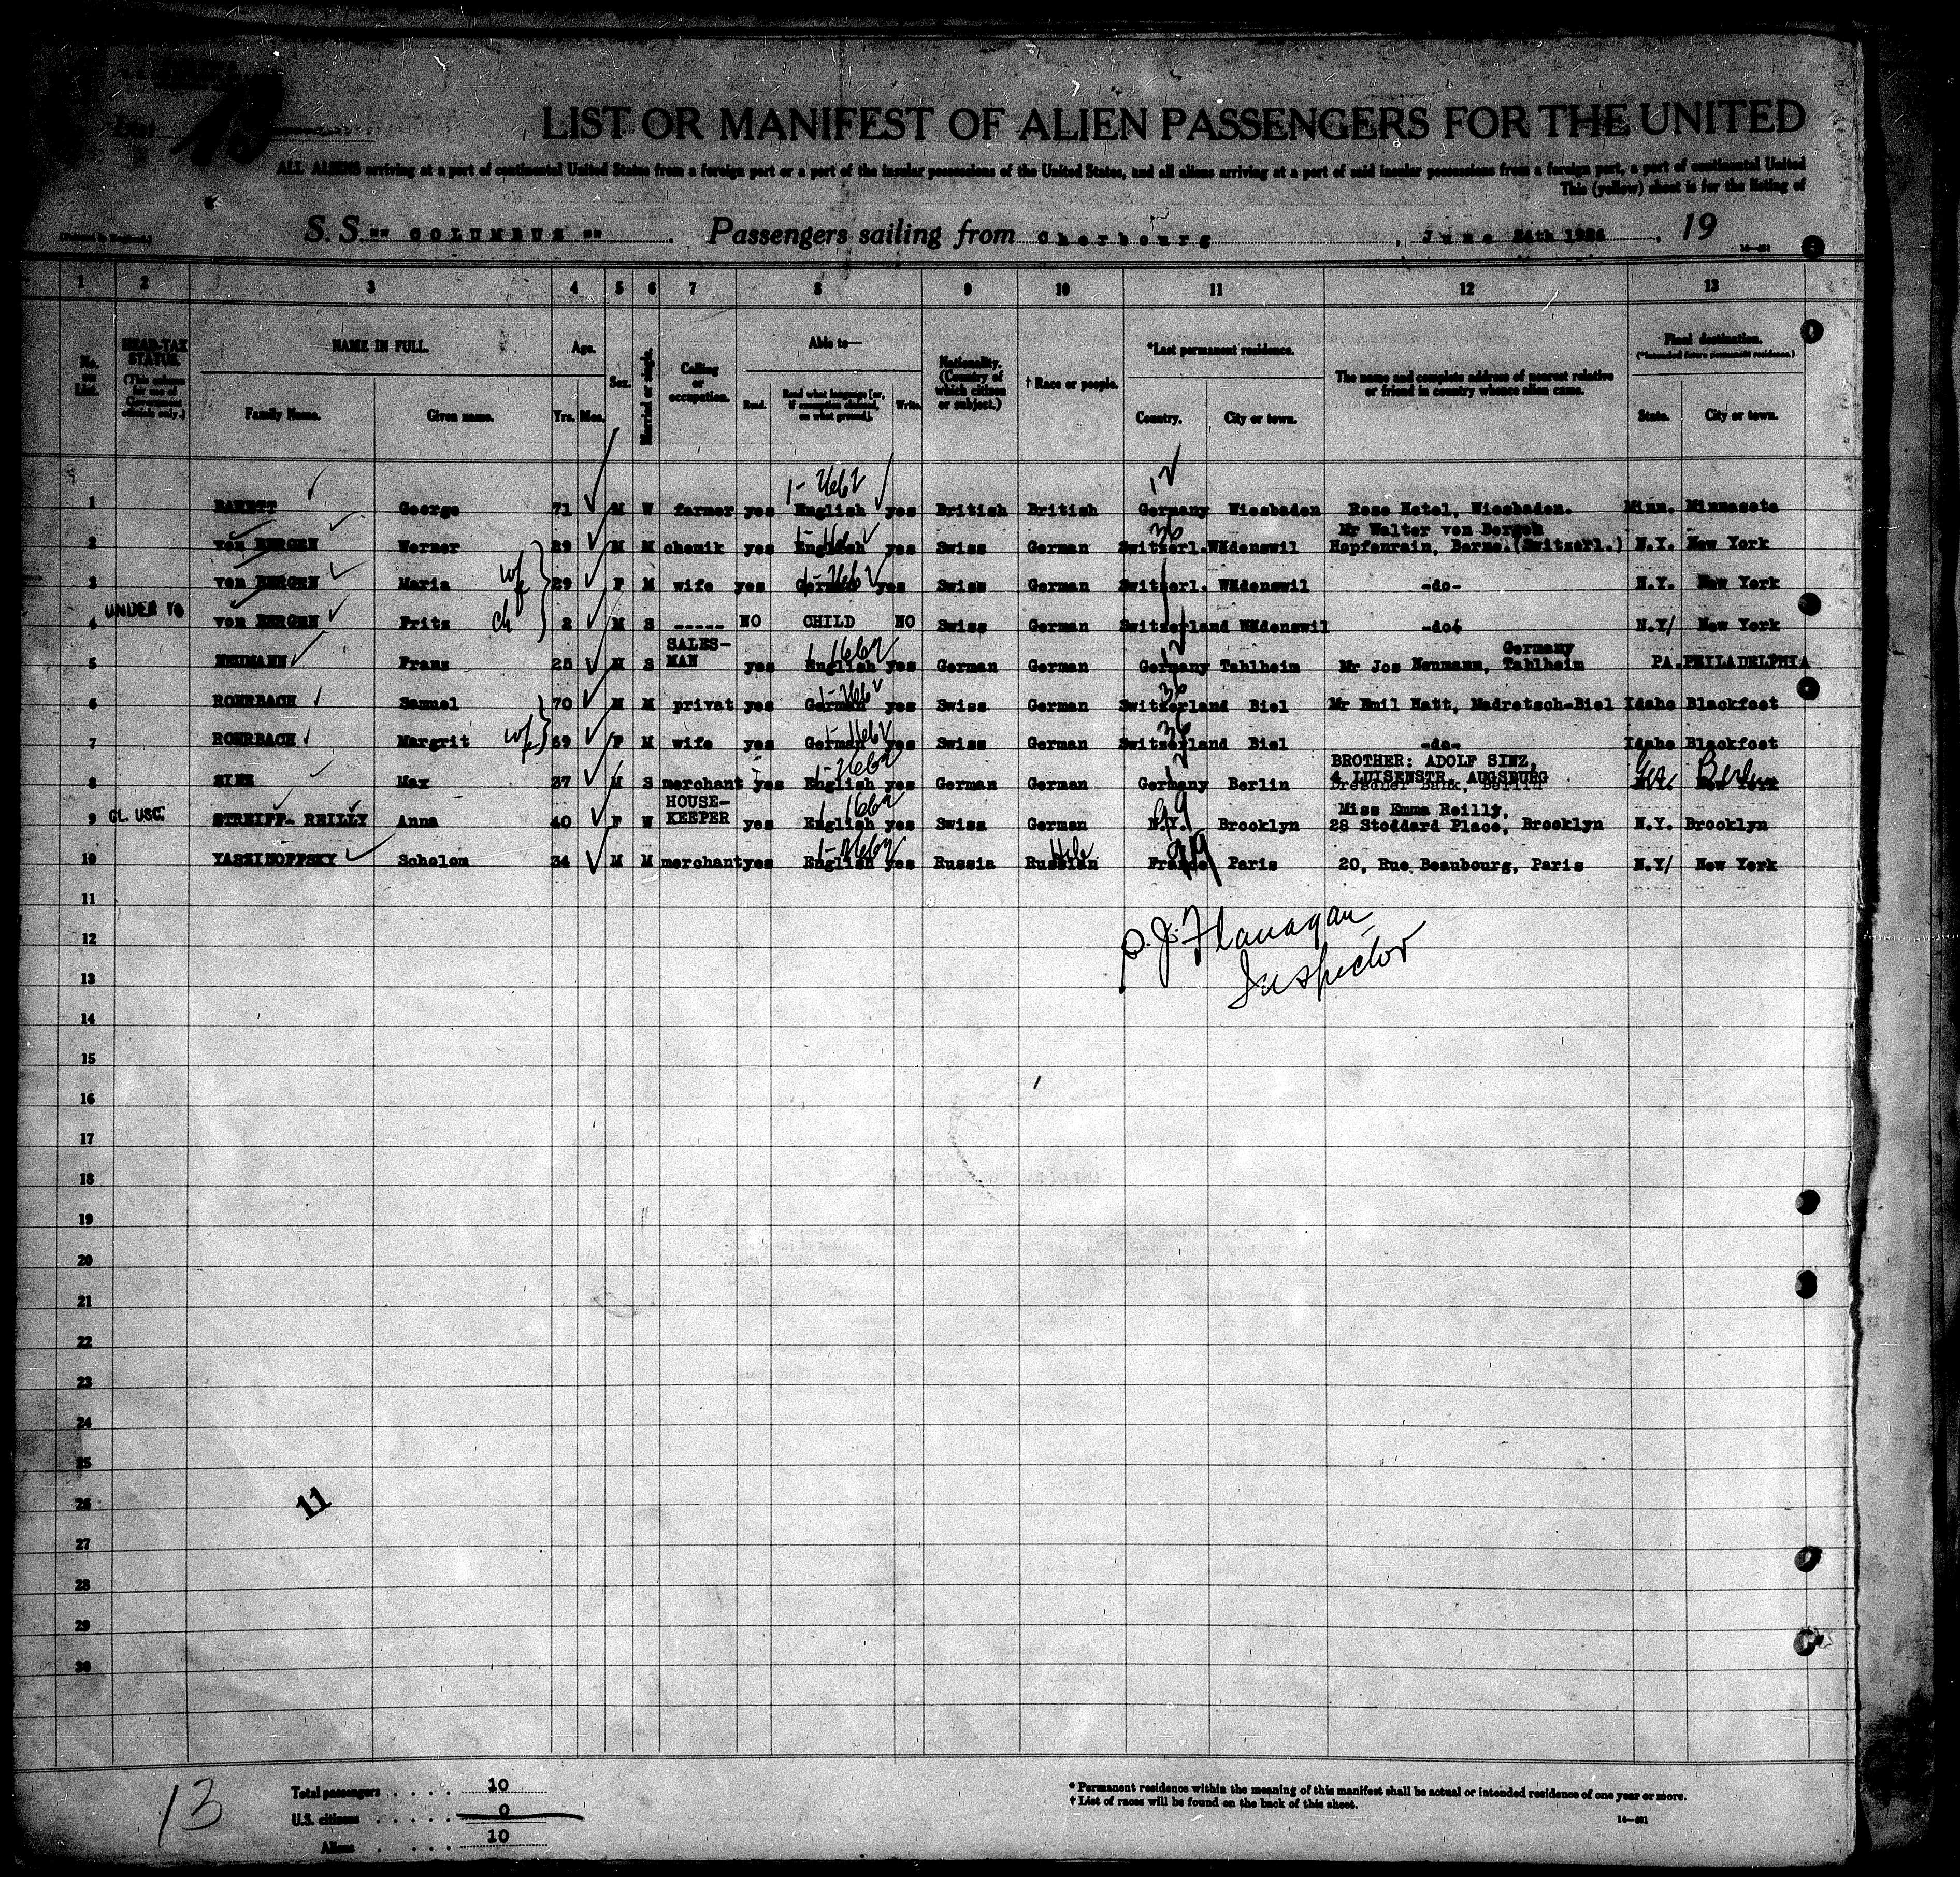 List 13
LIST OR MANIFEST OF ALIEN PASSENGERS FOR THE UNITED
ALL ALIENS arriving at a port of continental United States from a foreign port or a port of the insular possessions of the United States, and all aliens arriving at a port of said insular possessions from a foreign port, a port of continental United
This (yellow) sheet is for the listing of
(Printed in England.)
S. S. "" COLUMBUS "" . Passengers sailing from Cherbourg , June 24th 1926 , 19
1 2 3 4 5 6 7 8 9 10 11 12 13
No. on List.
HEAD-TAX STATUS. (This column for use of Government officials only.)
NAME IN FULL.
Family Name. Given name.
Age.
Yrs. Mos.
Sex.
Married or single.
Calling or occupation.
Able to—
Read. Read what language [or, if exemption claimed, on what ground]. Write.
Nationality. (Country of which citizen or subject.)
† Race or people.
*Last permanent residence.
Country. City or town.
The name and complete address of nearest relative or friend in country whence alien came.
Final destination.
(*Intended future permanent residence.)
State. City or town.
1 BARETT George 71 M W farmer yes English yes British British Germany Wiesbaden Rose Hotel, Wiesbaden. Minn. Minnasota
2 von BERGEN Werner 29 M M chemik yes English yes Swiss German Switzerl. Wädenswil Mr Walter von Bergen Hopfenrain, Berne.(Switzerl.) N.Y. New York
3 von BERGEN Maria wf 29 F M wife yes German yes Swiss German Switzerl. Wädenswil -do- N.Y. New York
UNDER 16
4 von BERGEN Fritz ch 2 M S ----- NO CHILD NO Swiss German Switzerland Wädenswil -do- N.Y/ New York
5 NEUMANN Franz 25 M S SALES-MAN yes English yes German German Germany Tahlheim Mr Jos Neumann, Tahlheim Germany PA. PHILADELPHIA
6 ROHRBACH Samuel 70 M M privat yes German yes Swiss German Switzerland Biel Mr Emil Hatt, Madretsch-Biel Idaho Blackfoot
7 ROHRBACH Margrit wf 69 F M wife yes German yes Swiss German Switzerland Biel -do- Idaho Blackfoot
8 SINZ Max 37 M S merchant yes English yes German German Germany Berlin BROTHER: ADOLF SINZ, 4 LUISENSTR. AUGSBURG Dresdner Bank, Berlin Ger. Berlin New York
9 CL. USC. STREIFF- REILLY Anna 40 F W HOUSE-KEEPER yes English yes Swiss German N.Y. Brooklyn Miss Emma Reilly, 28 Stoddard Place, Brooklyn N.Y. Brooklyn
10 YASZINOFFSKY Scholom 34 M M merchant yes English yes Russia Russian Heb France Paris 20, Rue Beaubourg, Paris N.Y/ New York
11
P. J. Flanagan
12
Inspector
13
14
15
16
17
18
19
20
21
22
23
24
25
26
11
27
28
29
30
13
Total passengers . . . . 10
U.S. citizens . . . . . 0
Aliens . . . . 10
* Permanent residence within the meaning of this manifest shall be actual or intended residence of one year or more.
† List of races will be found on the back of this sheet.